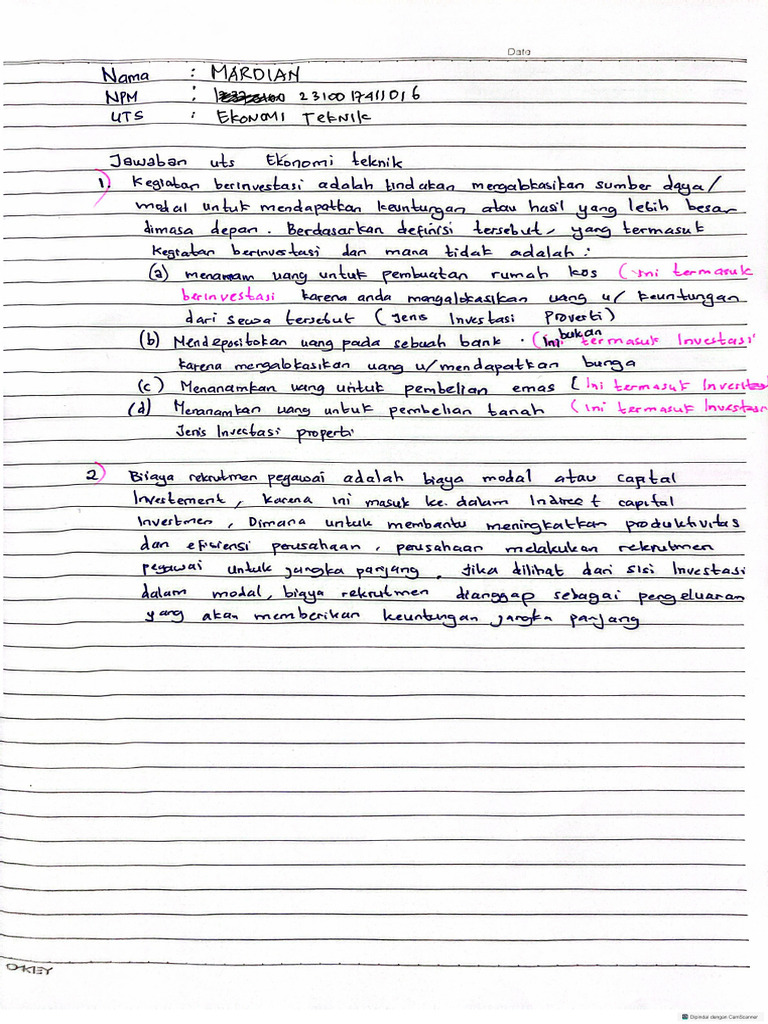 Date
Nama : MARDIAN
NPM : 2310017411016
UTS : EKONOMI TEKNIK
Jawaban uts Ekonomi teknik
1) Kegiatan berinvestasi adalah tindakan mengalokasikan sumber daya/
modal untuk mendapatkan keuntungan atau hasil yang lebih besar
dimasa depan. Berdasarkan definisi tersebut, yang termasuk
kegiatan berinvestasi dan mana tidak adalah :
(a) menanam uang untuk pembuatan rumah kos (ini termasuk
berinvestasi karena anda mengalokasikan uang u/ keuntungan
dari sewa tersebut (Jenis Investasi Proverti)
(b) Mendepositokan uang pada sebuah bank. (ini bukan termasuk Investasi
karena mengalokasikan uang u/mendapatkan bunga
(c) Menanamkan uang untuk pembelian emas [ini termasuk Investasi
(d) Menanamkan uang untuk pembelian tanah (ini termasuk Investasi
Jenis Investasi properti
2) Biiaya rekrutmen pegawai adalah biaya modal atau capital
Investement, karena ini masuk ke dalam Indirect capital
Investmen, Dimana untuk membantu meningkatkan produktivitas
dan efisiensi perusahaan, perusahaan melakukan rekrutmen
pegawai untuk jangka panjang, Jika dilihat dari sisi Investasi
dalam modal, biaya rekrutmen dianggap sebagai pengeluaran
yang akan memberikan keuntungan jangka panjang
O-KEY
Dipindai dengan CamScanner